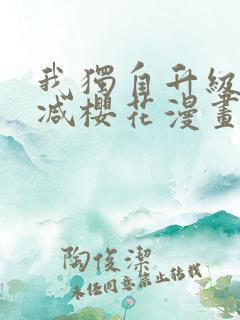 我獨自升級
減櫻花漫畫
陶俊潔
未经同意禁止转载